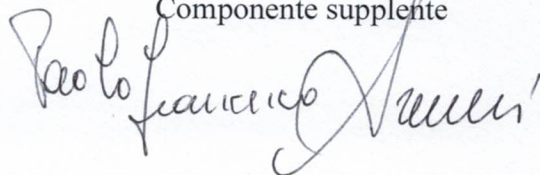 Componente supplente
Paolo Francesco